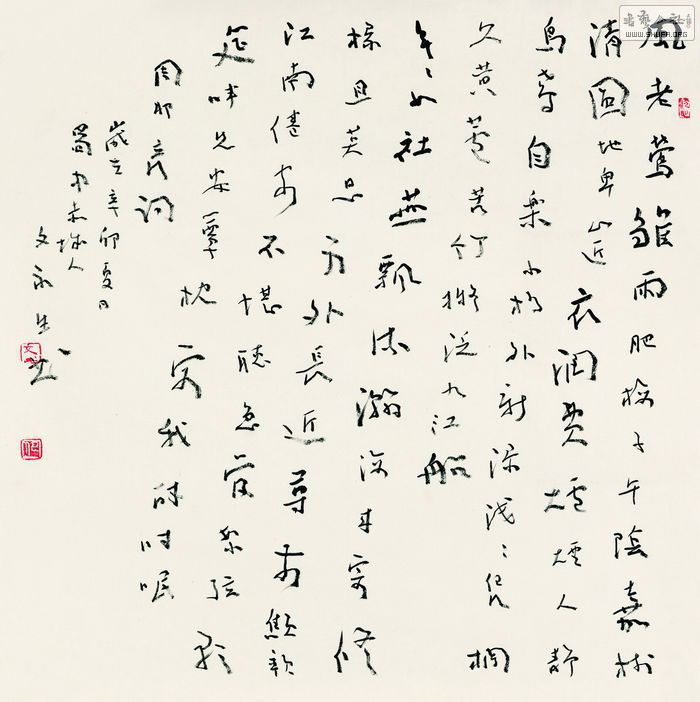 風老鶯雛雨肥梅子午陰嘉樹
清圓地卑山近衣潤費爐煙人靜
烏鳶自樂小桥外新渌浅々凭欄
久黃蘆苦竹擬泛九江船
年々如社燕飄流瀚海來寄修
椽且莫思身外長近尊前憔悴
江南倦客不堪聽急管繁弦歌
筵畔先安簟枕容我時時眠
周邦彥詞
歲在辛卯夏日
蜀中赤城人
文永生书
书艺公社
WWW.SHUFA.ORG